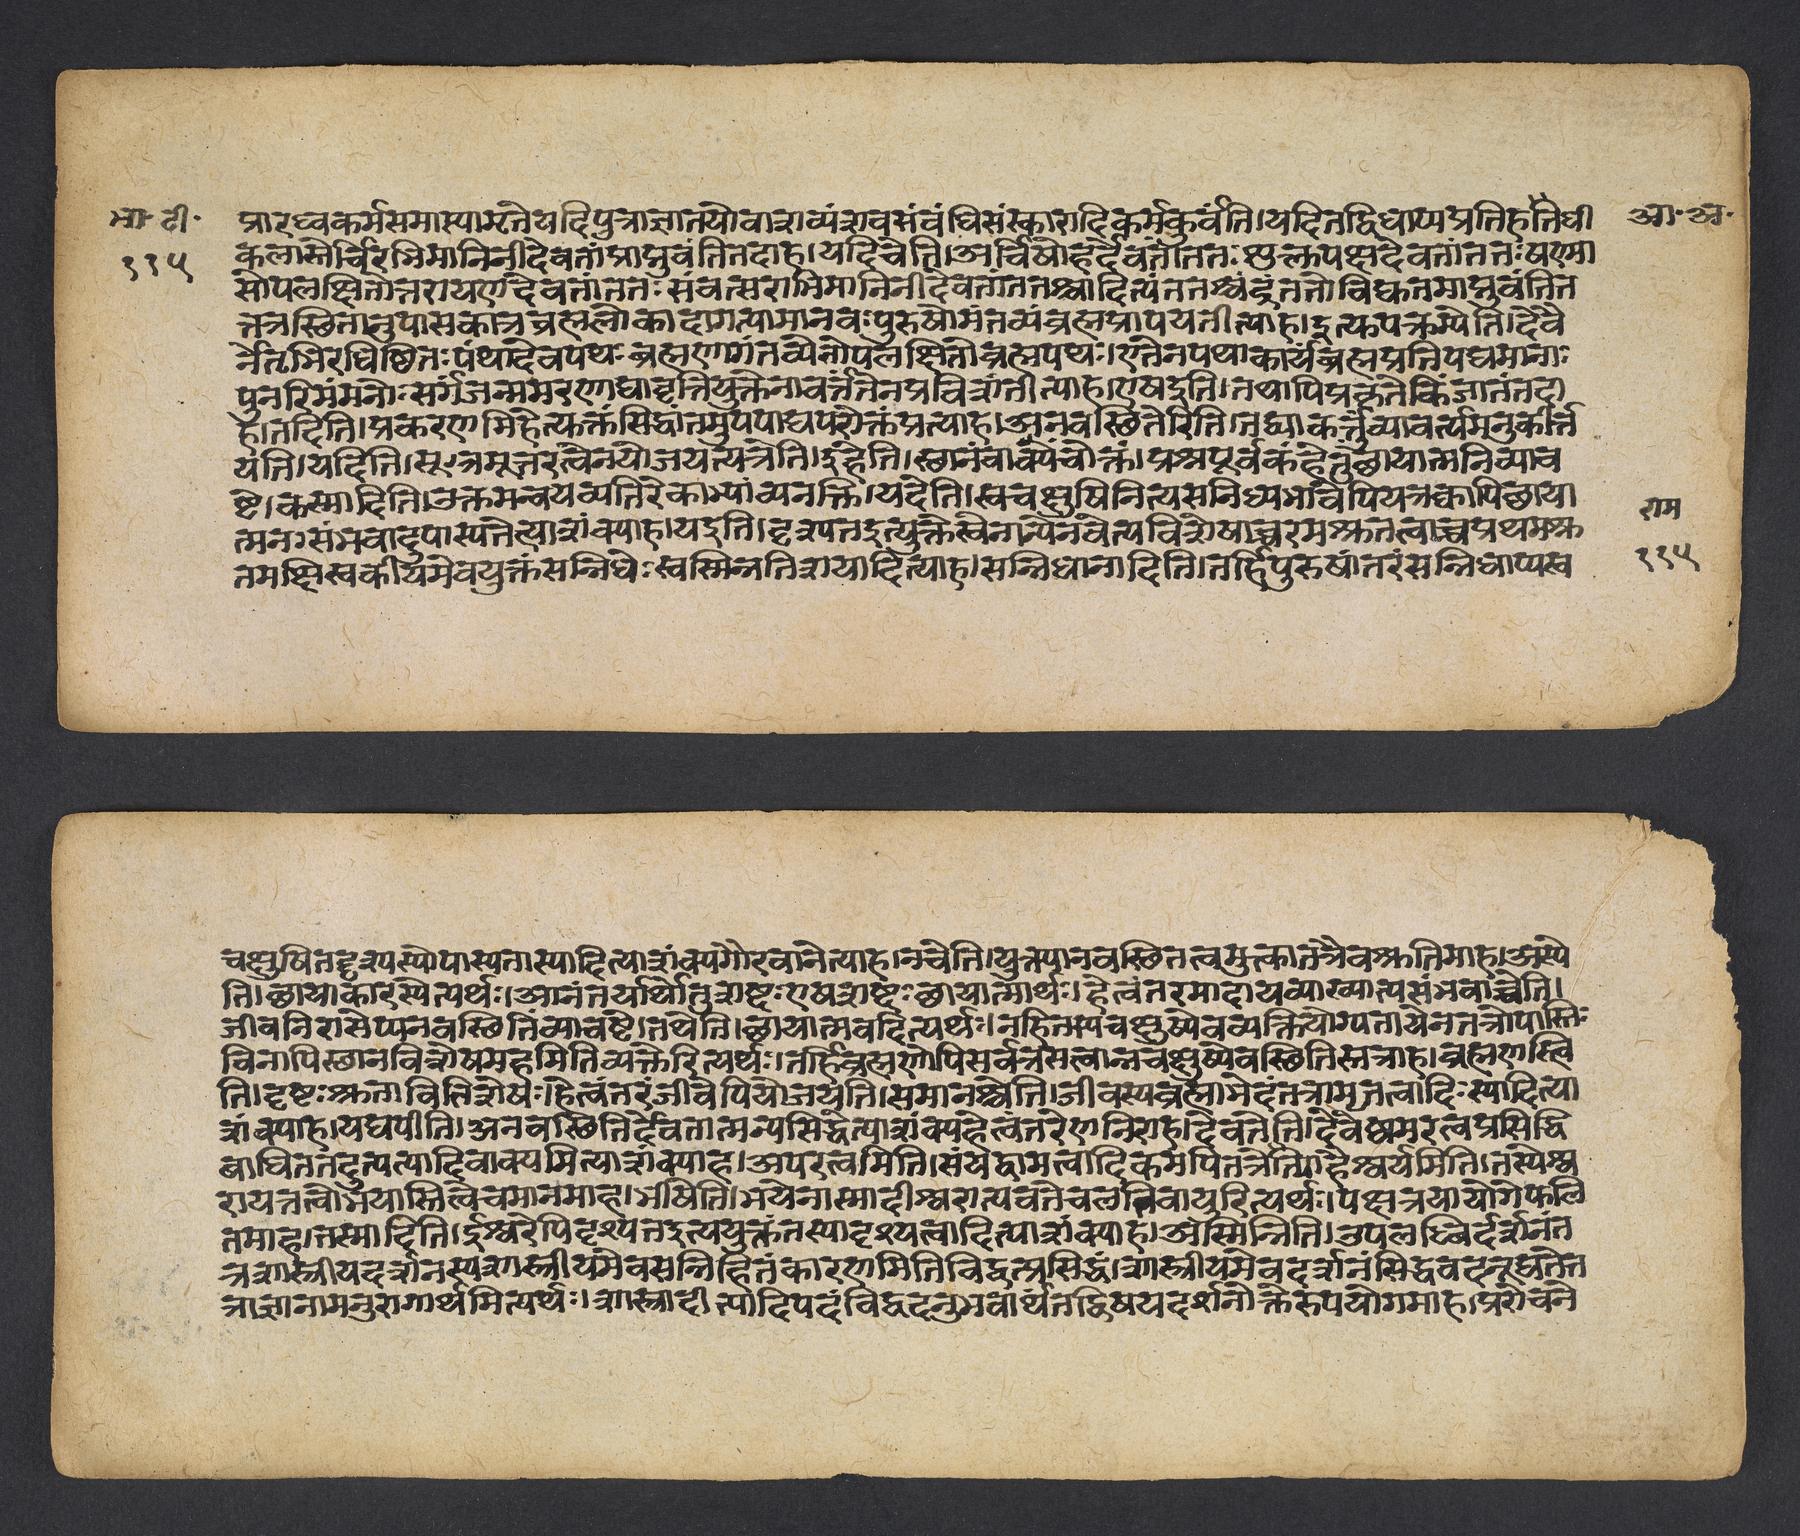 भा. टी.
११५
आ. अ.
प्रारब्धकर्मसमास्पामृतेयदिपुत्राज्ञातयोवाशव्यंशवसंबंधिसंस्कारादिकर्मकुर्वंति।यदितद्विधाप्यप्रतिहतिधी
कलास्तैर्चिरभिमानिनींदेवतांप्राप्नुवंतितदाह।यदिचेति।अर्चिषोहर्देवतांततःशुक्लपक्षदेवतांततःषण्मा
सोपलक्षितोत्तरायणदेवतांततःसंवत्सराभिमानिनींदेवतांततश्चादित्यंततश्चंद्रंततोविद्युतमाप्नुवंतित
तत्रस्थितानुपासकान्नब्रह्मलोकादागत्यामानवःपुरुषोगंतव्यंब्रह्मप्रापयतीत्याह।इत्यपक्रम्येति।देवै
र्नेतृभिरधिष्ठितःपंथादेवपथःब्रह्मणागंतव्येनोपलक्षितोब्रह्मपथः।एतेनपथाकार्यंब्रह्मप्रतिपद्यमानाः
पुनरिमंमनोःसर्गंजन्ममरणाद्यावृत्तियुक्तंनावर्त्तंतेनप्रविशंतीत्याह।एषइति।तथापिप्रकृतेकिंजातंतदा
ह।तदिति।प्रकरणमिहेत्यक्तंसिद्धांतमुपपाद्यपरोक्तंप्रत्याह।अनवस्थितेरिति।तद्व्याकर्त्तुंव्यावर्त्यमनुकीर्त्त
यति।यदिति।सूत्रमुत्तरत्वेनयोजयत्यत्रेति।इहेति।स्थानंवाक्यंचोक्तं।प्रश्नपूर्वकंहेतुंछायात्मनिव्याच
ष्टे।कस्मादिति।उक्तमन्वयव्यतिरेकाभ्यांव्यनक्ति।यदेति।स्वचक्षुषिनित्यसन्निध्यभावेपियत्रक्वापिछाया
त्मनःसंभवादुपास्यतेत्याशंक्याह।यइति।दृश्यतइत्युक्तेस्वेनान्येनवेत्यविशेषाच्चरमश्रुतत्वाच्चप्रथमश्रु
तमक्षिस्वकीयमेवयुक्तंसन्निधेःस्वस्मिन्नतिशयादित्याह।सन्निधानादिति।तर्हिपुरुषांतरंसन्निधाप्यस्व
राम
११५
चक्षुषितदृश्यस्योपास्यतास्यादित्याशंक्यगौरवान्नेत्याह।नचेति।युक्त्यानवस्थितत्वमुक्त्वातत्रैवश्रुतिमाह।अस्ये
ति।छायाकारस्येत्यर्थः।आनंतर्यार्थोतुशब्दःएषशब्दःछायात्मार्थः।हेत्वंतरमादायव्याख्यात्यसंभवाच्चेति।
जीवनिरासेप्यनवस्थितिंव्याचष्टे।तथेति।छायात्मवदित्यर्थः।नहितस्यचक्षुष्येवव्यक्तियोग्यतायेनतत्रोपास्तिः
विनापिस्थानविशेषमहमितिव्यक्तेरित्यर्थः।तर्हिब्रह्मणोपिसर्वत्रसत्वान्नचक्षुष्येवस्थितिस्तत्राह।ब्रह्मणस्त्वि
ति।दृष्टःश्रुताविति शेषः।हेत्वंतरंजीवेपियोजयति।समानश्चेति।जीवस्यब्रह्माभेदंतत्रामृतत्वादिःस्यादित्या
शंक्याह।यद्यपीति।अनवस्थितिर्देवतात्मन्यसिद्धेत्याशंक्यहेत्वंतरेणनिराह।देवतेति।देवेष्वमरत्वप्रसिद्धि
बाधितंतदुत्पत्यादिवाक्यमित्याशंक्याह।अपरत्वमिति।संयद्वामत्वादिकमपितत्रनेत्याहैश्वर्यमिति।तस्येश्व
रायत्तत्वोभयास्तित्वेचमानमाह।भीषेति।भयेनास्मादीश्वरात्पवतेचलतिवायुरित्यर्थः।पक्षत्रयायोगेफलि
तमाह।तस्मादिति।ईश्वरेपिदृश्यतइत्ययुक्तंतस्यादृश्यत्वादित्याशंक्याह।अस्मिन्निति।उपलब्धिर्दर्शनंत
त्रशास्त्रीयदर्शनस्यशास्त्रीयमेवसन्निहितंकारणमितिविद्वत्प्रसिद्धं।शास्त्रीयमेवदर्शनंसिद्धवदनूद्यतेत
त्राज्ञानामनुरागार्थमित्यर्थः।शास्त्रादीत्यादिपदंविद्वदनुभवार्थंतद्विषयदर्शनोक्तेरुपयोगमाह।प्ररोचने